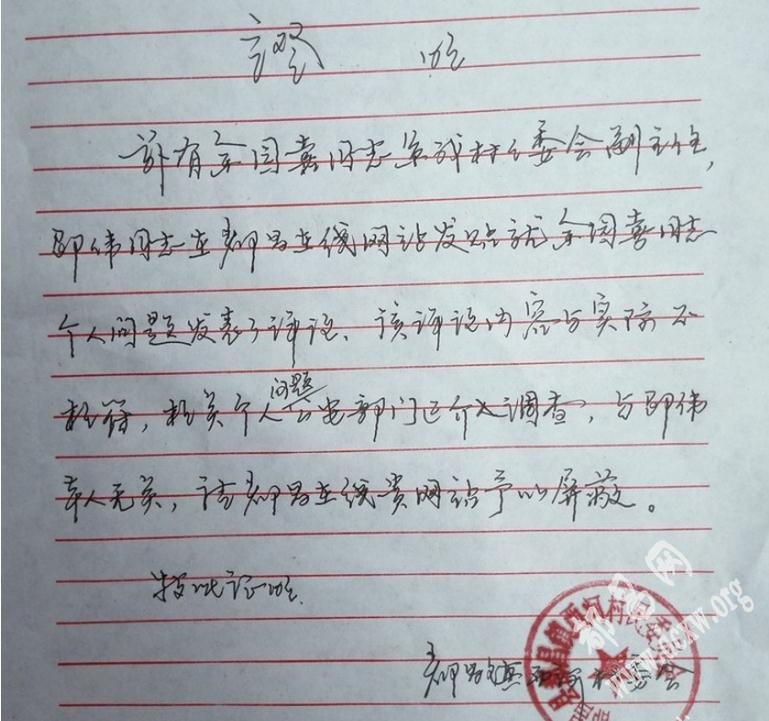 证明
兹有余国喜同志系我村村委会副主任，
邵伟同志在都昌在线网站发帖就余国喜同志
个人问题发表了评论、该评论内容与实际不
相符，相关个人问题公安部门已介入调查，与邵伟
本人无关，请都昌在线贵网站予以屏蔽。
特此证明
都昌镇西河村委会
都昌网
www.dcxw.org